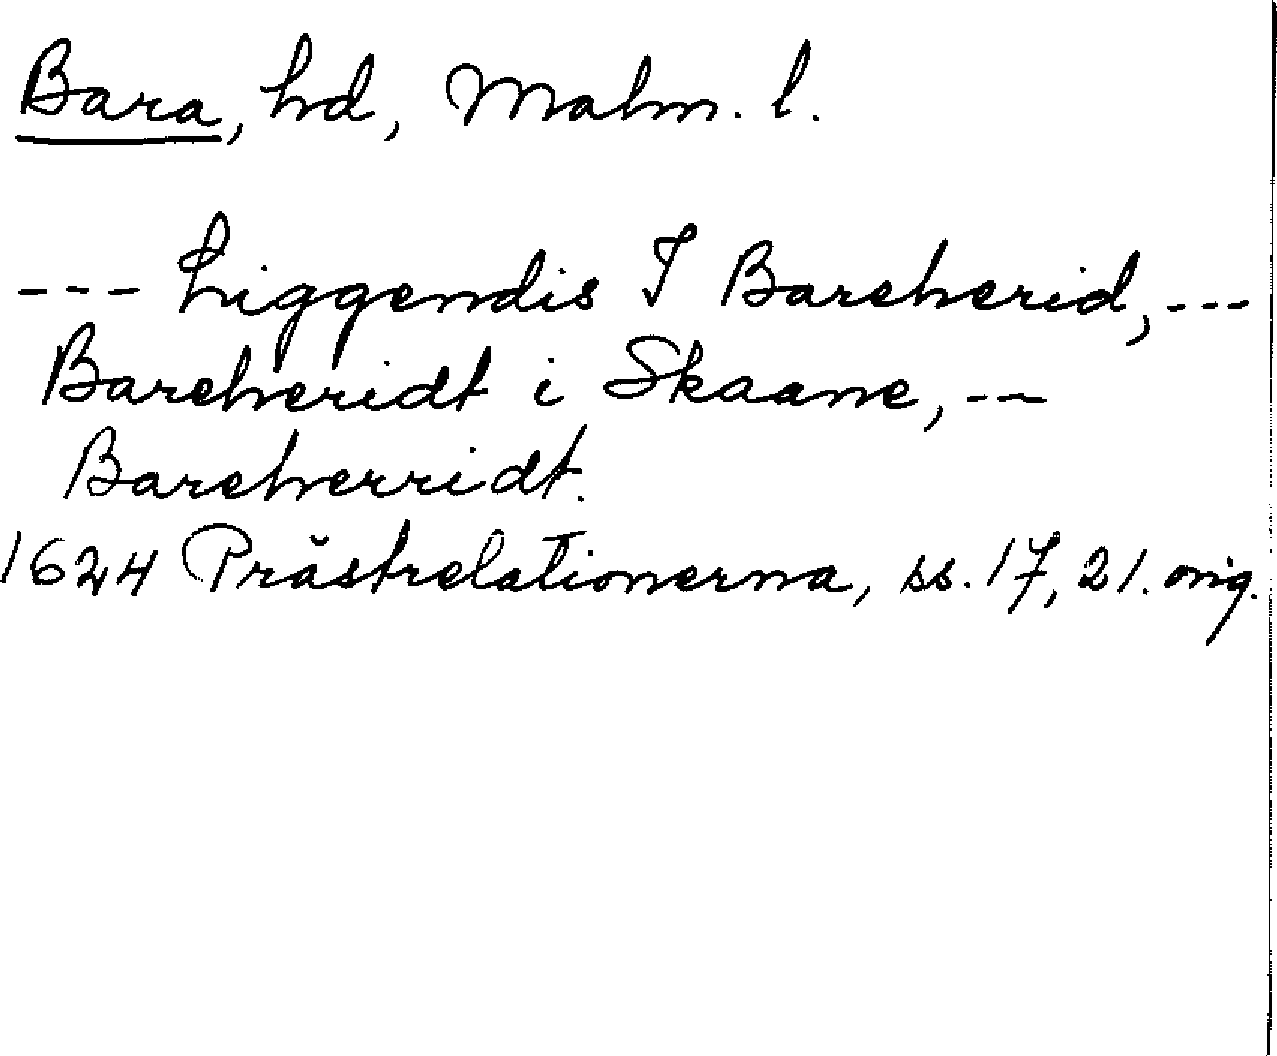 Bara, hd, Malm. l.
--- Liggendis I Bareherid, ---
Bareheridt i Skaane, ---
Bareherridt.
1624 Prästrelationerna, ss. 17, 21. orig.